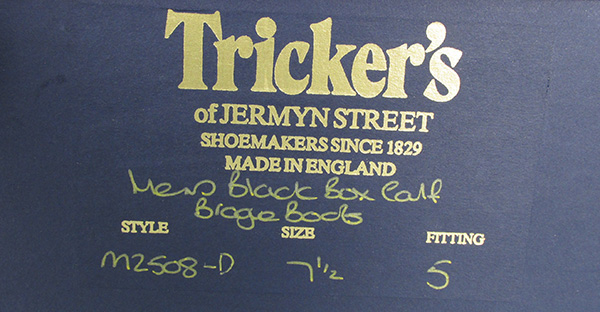 Tricker's
of JERMYN STREET
SHOEMAKERS SINCE 1829
MADE IN ENGLAND
Mens Black Box Calf
Brogue Boots
STYLE SIZE FITTING
M2508-D 7½ 5